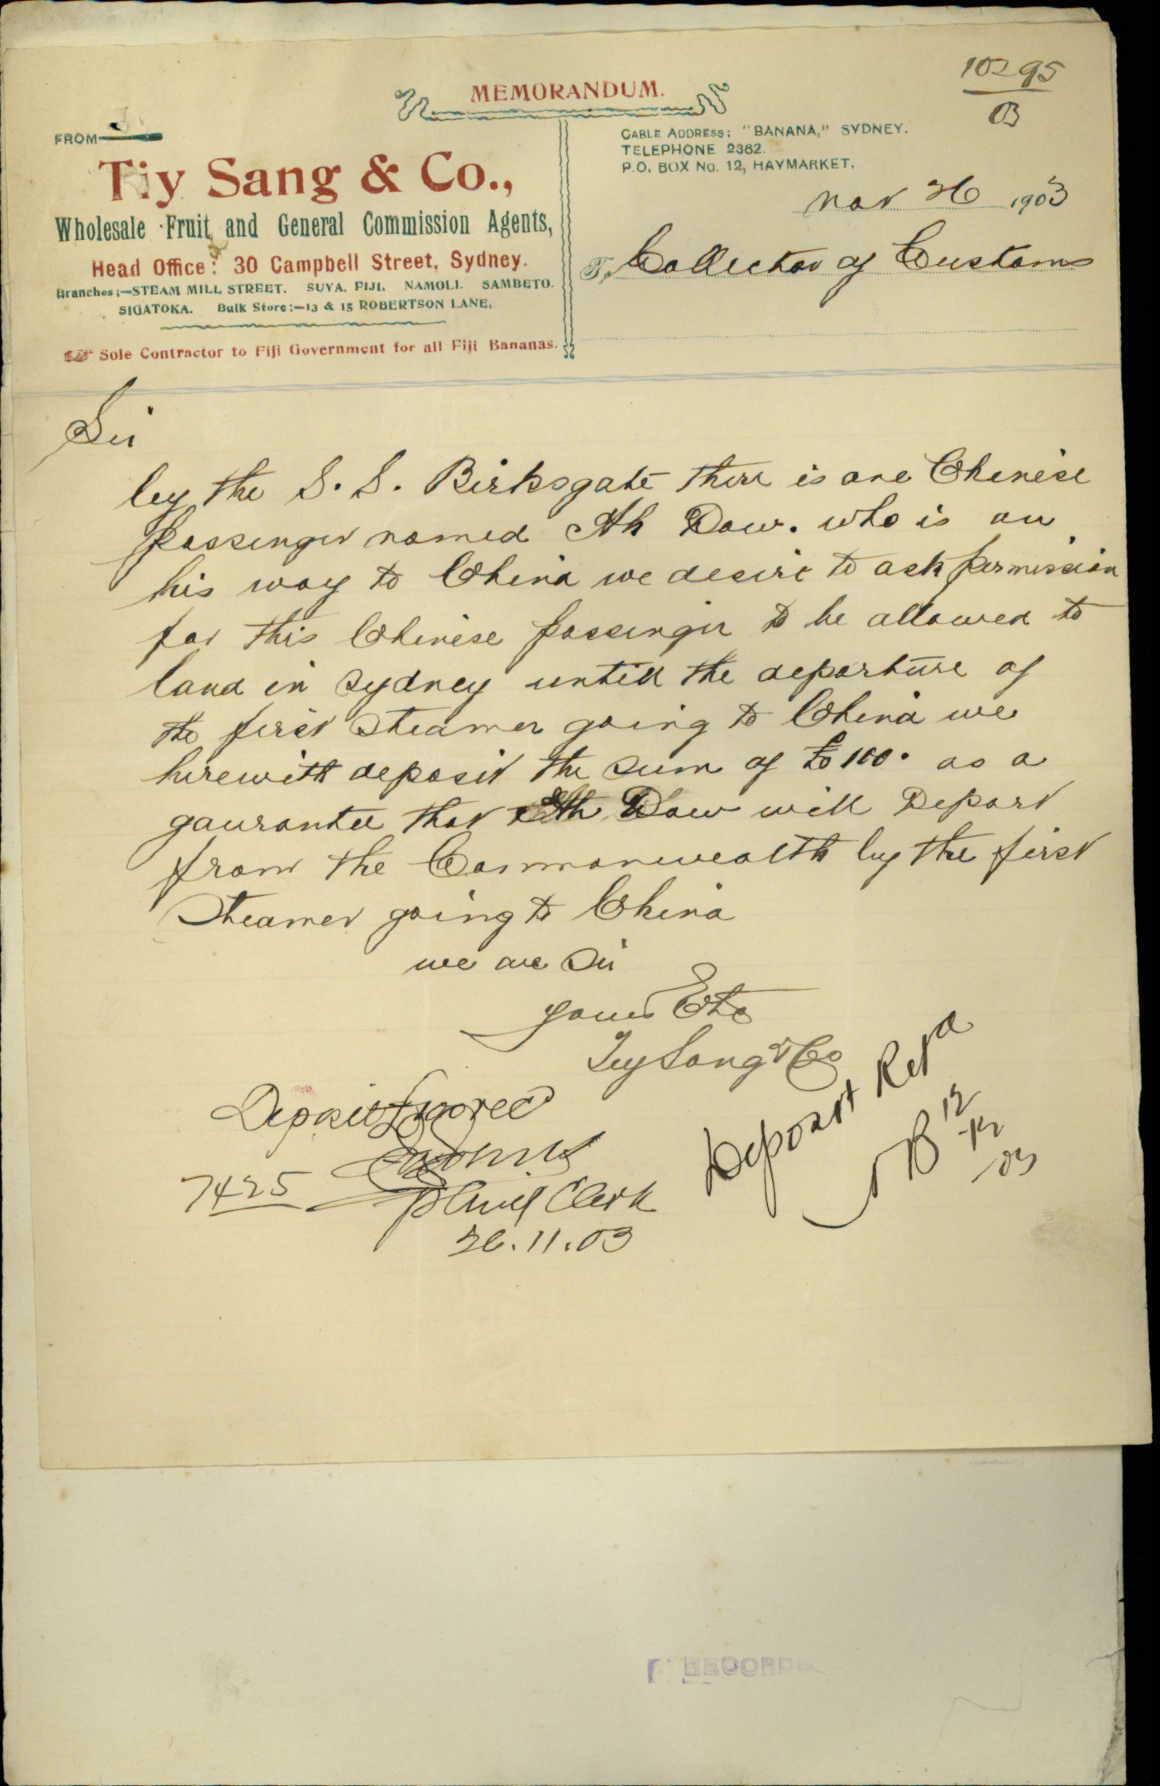 10295
03
MEMORANDUM.
FROM
Tiy Sang & Co.,
Wholesale Fruit and General Commission Agents,
Head Office: 30 Campbell Street, Sydney.
Branches:—STEAM MILL STREET. SUVA. FIJI. NAMOLI. SAMBETO.
SIGATOKA. Bulk Store:—13 & 15 ROBERTSON LANE.
Sole Contractor to Fiji Government for all Fiji Bananas.
CABLE ADDRESS: "BANANA," SYDNEY.
TELEPHONE 2382.
P.O. BOX No. 12, HAYMARKET.
Nov 26 1903
To Collector of Customs
Sir
by the S. S. Birksgate there is one Chinese
passenger named Ah Dow. who is on
his way to China we desire to ask permission
for this Chinese passenger to be allowed to
land in Sydney untill the departure of
the first steamer going to China we
herewith deposit the sum of £100. as a
gaurantee that Ah Dow will Depart
from the Commonwealth by the first
Steamer going to China
we are Sir
yours Etc
Tiy Sang & Co
Deposit
7425
Clerk
26.11.03
Deposit Retd
B 12
12
03
RECORDS